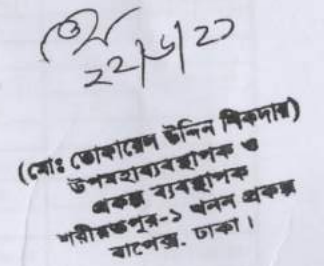 22/6/21
(মোঃ তোফায়েল উদ্দিন সিকদার)
উপমহাব্যবস্থাপক ও
প্রকল্প ব্যবস্থাপক
শরীয়তপুর-১ খনন প্রকল্প
বাপেক্স, ঢাকা।